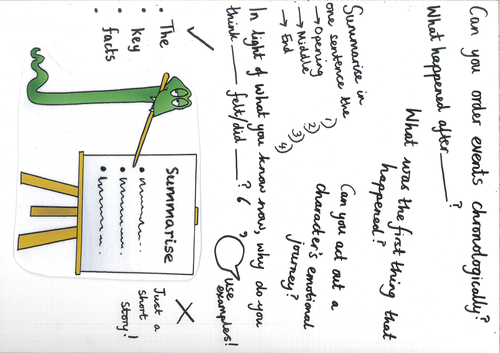 Can you order events chronologically?
What happened after ______?
What was the first thing that
happened?
Summarise in
one sentence the
→ Opening
→ Middle
→ End
1)
2)
3)
4)
Can you act out a
character's emotional
journey?
In light of what you know now, why do you
think ____ felt/did ____?
use
examples!
✓
• The
• key
• facts
Summarise
✗
Just a
short
story!